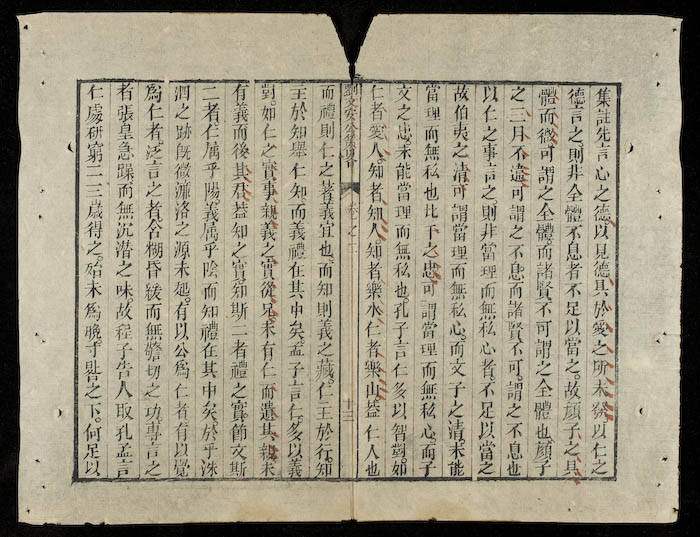 集註先言心之德以見德具於愛之所未發以仁之
德言之則非全體不息者不足以當之故顔子之具
體而微可謂之全體而諸賢不可謂之全體也顔子
之三月不違可謂之不息而諸賢不可謂之不息也
以仁之事言之則非當理而無私心者不足以當之
故伯夷之清可謂當理而無私心而文子之清未能
當理而無私也比干之忠可謂當理而無私心而子
文之忠未能當理而無私也孔子言仁多以智對如
仁者愛人知者知人知者樂水仁者樂山蓋仁人也
劉文安公
十三
而禮則仁之著義宜也而知則義之藏仁主於行知
主於知舉仁知而義禮在其中矣孟子言仁多以義
對如仁之實事親義之實從兄未有仁而遺其親未
有義而後其君蓋知之實知斯二者禮之實節文斯
二者仁属乎陽義属乎陰而知禮在其中矣於乎洙
泗之跡旣微濂洛之源未起有以公爲仁者有以覺
爲仁者泛言之者含糊昏緩而無警切之功專言之
者張皇急躁而無沉潛之味故程子告人取孔孟言
仁處研窮二三歲得之始未爲晚寸晷之下何足以